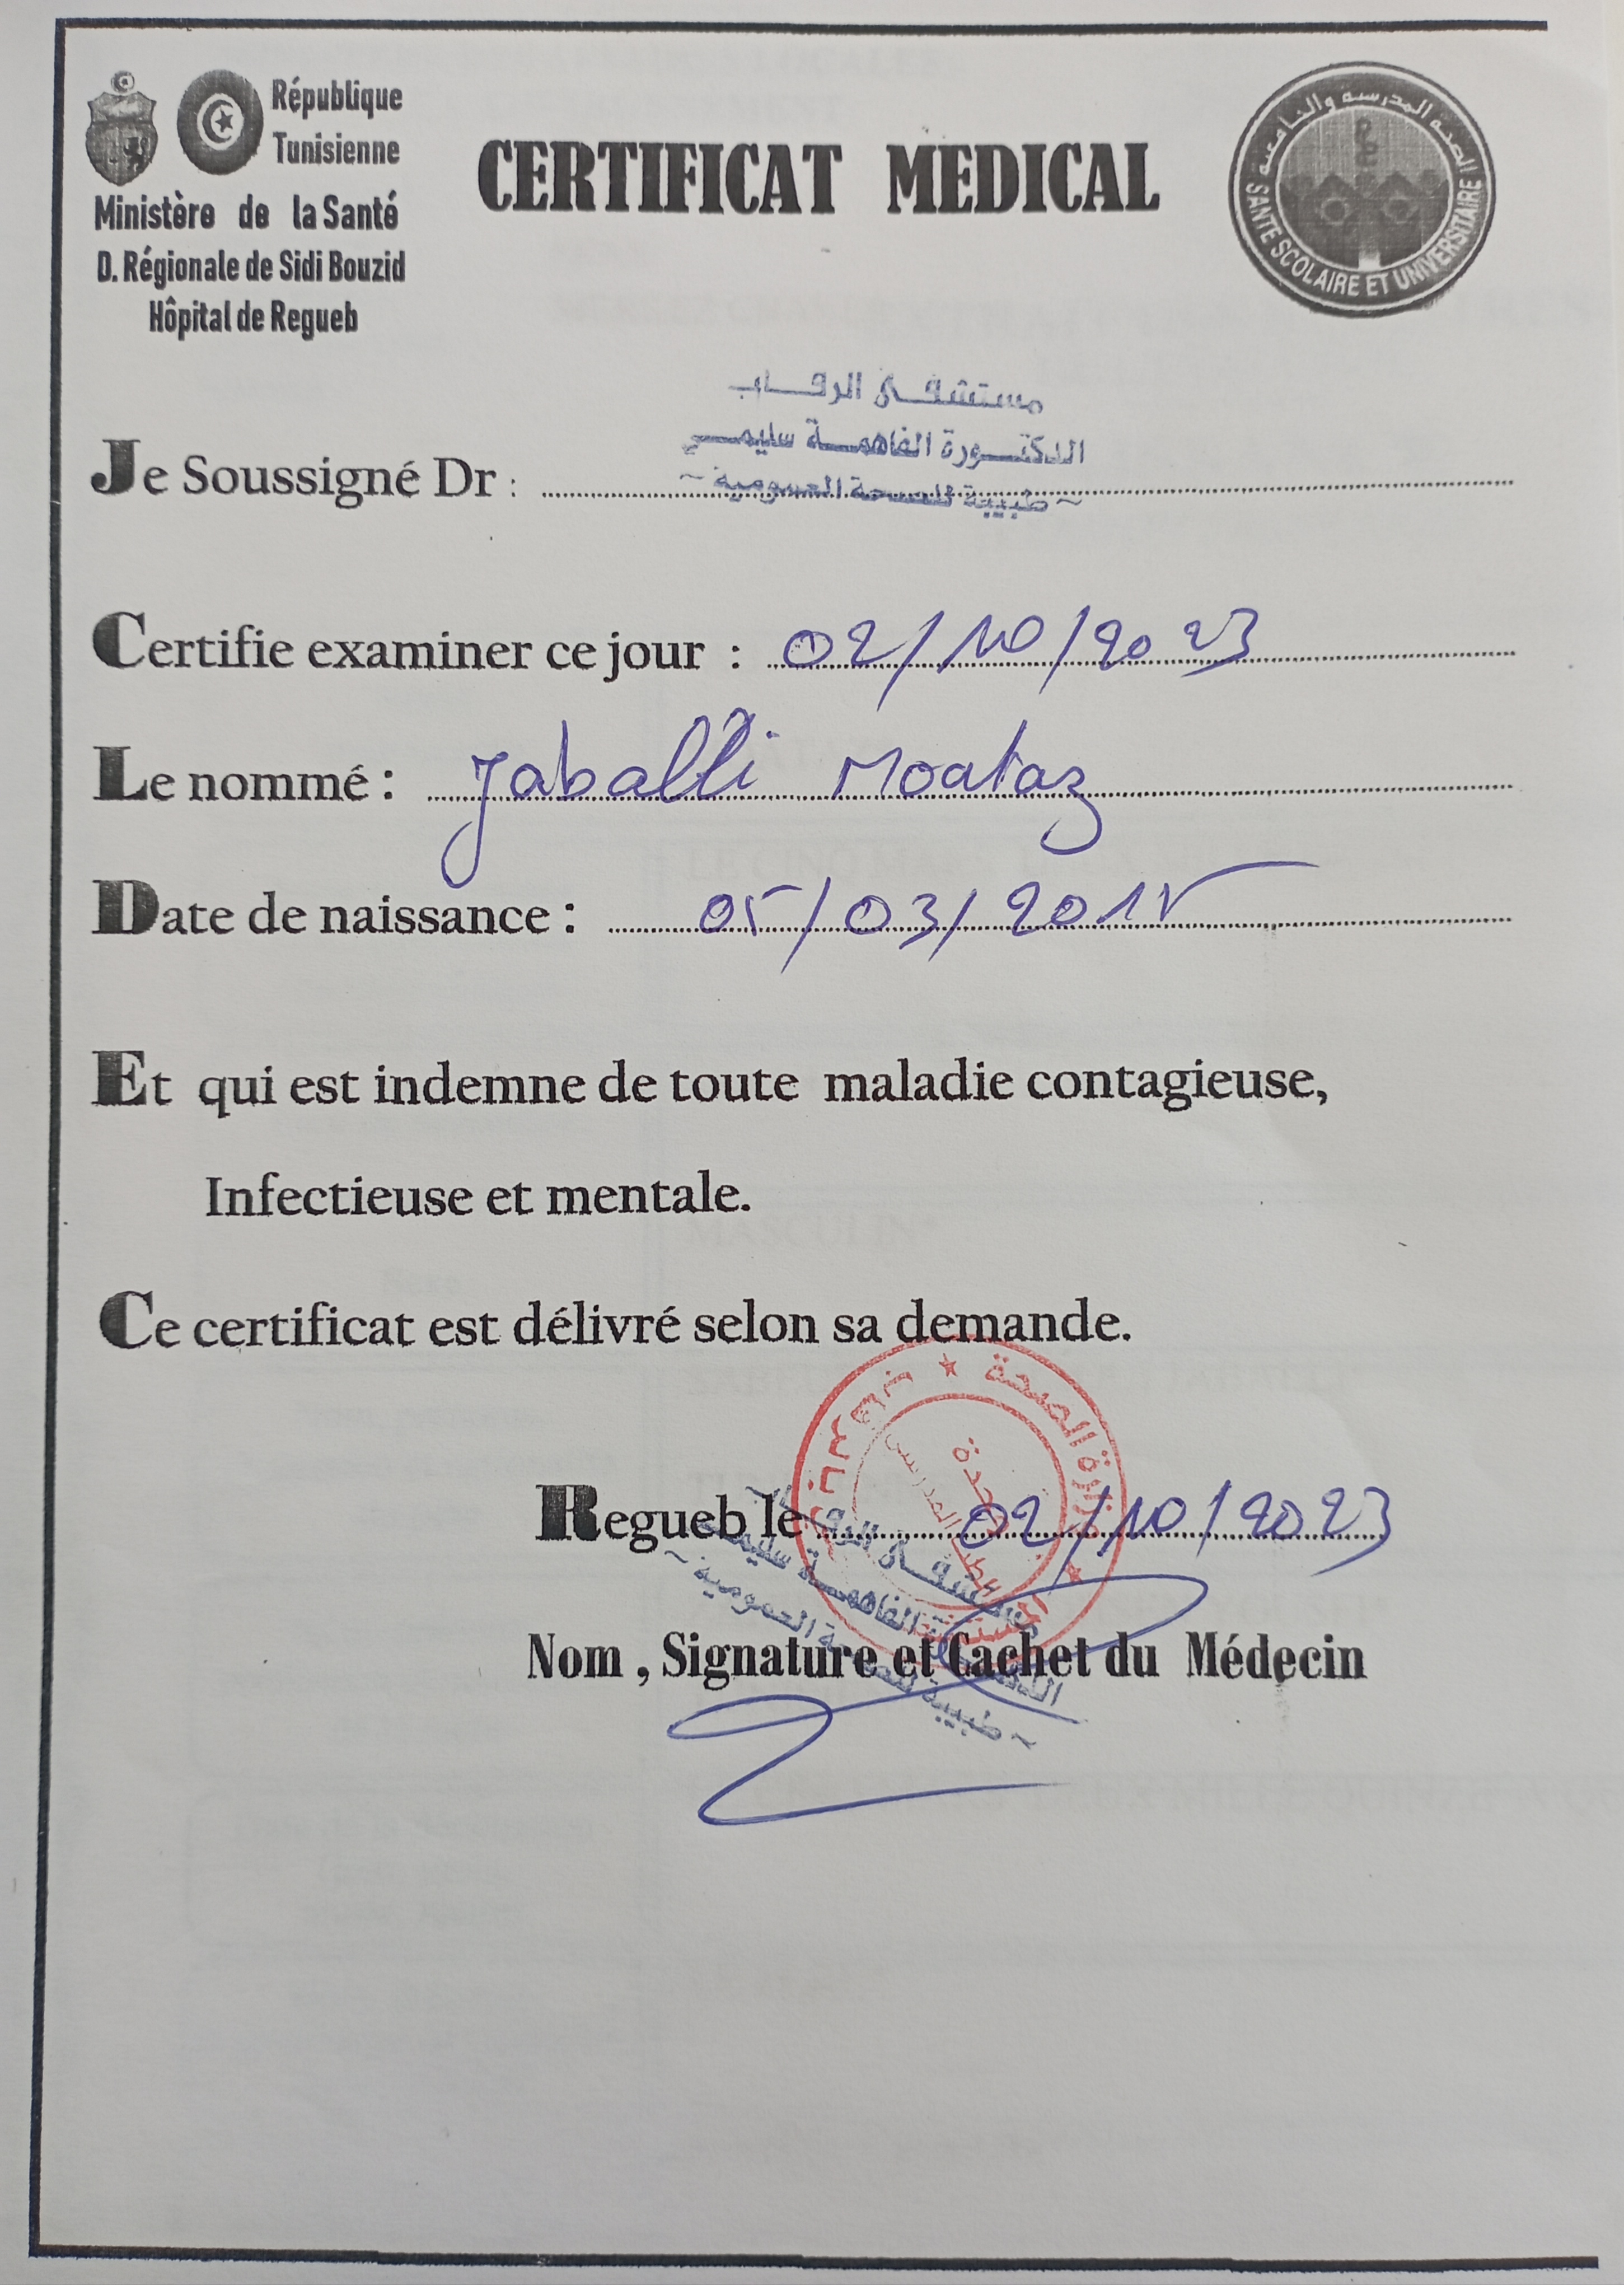 République
Tunisienne
Ministère de la Santé
D. Régionale de Sidi Bouzid
Hôpital de Regueb
CERTIFICAT MEDICAL
الصحة المدرسية والجامعية
SANTE SCOLAIRE ET UNIVERSITAIRE
مستشفى الرقاب
الدكتورة الفاهمة سليمي
~ طبيبة للصحة العمومية ~
Je Soussigné Dr :
Certifie examiner ce jour : 02/10/2023
Le nommé : Jaballi Moataz
Date de naissance : 05/03/2015
Et qui est indemne de toute maladie contagieuse,
Infectieuse et mentale.
Ce certificat est délivré selon sa demande.
وزارة الصحة
Regueb le 02/10/2023
مستشفى الرقاب
الفاهمة سليمي
~ طبيبة للصحة العمومية ~
Nom , Signature et Cachet du Médecin